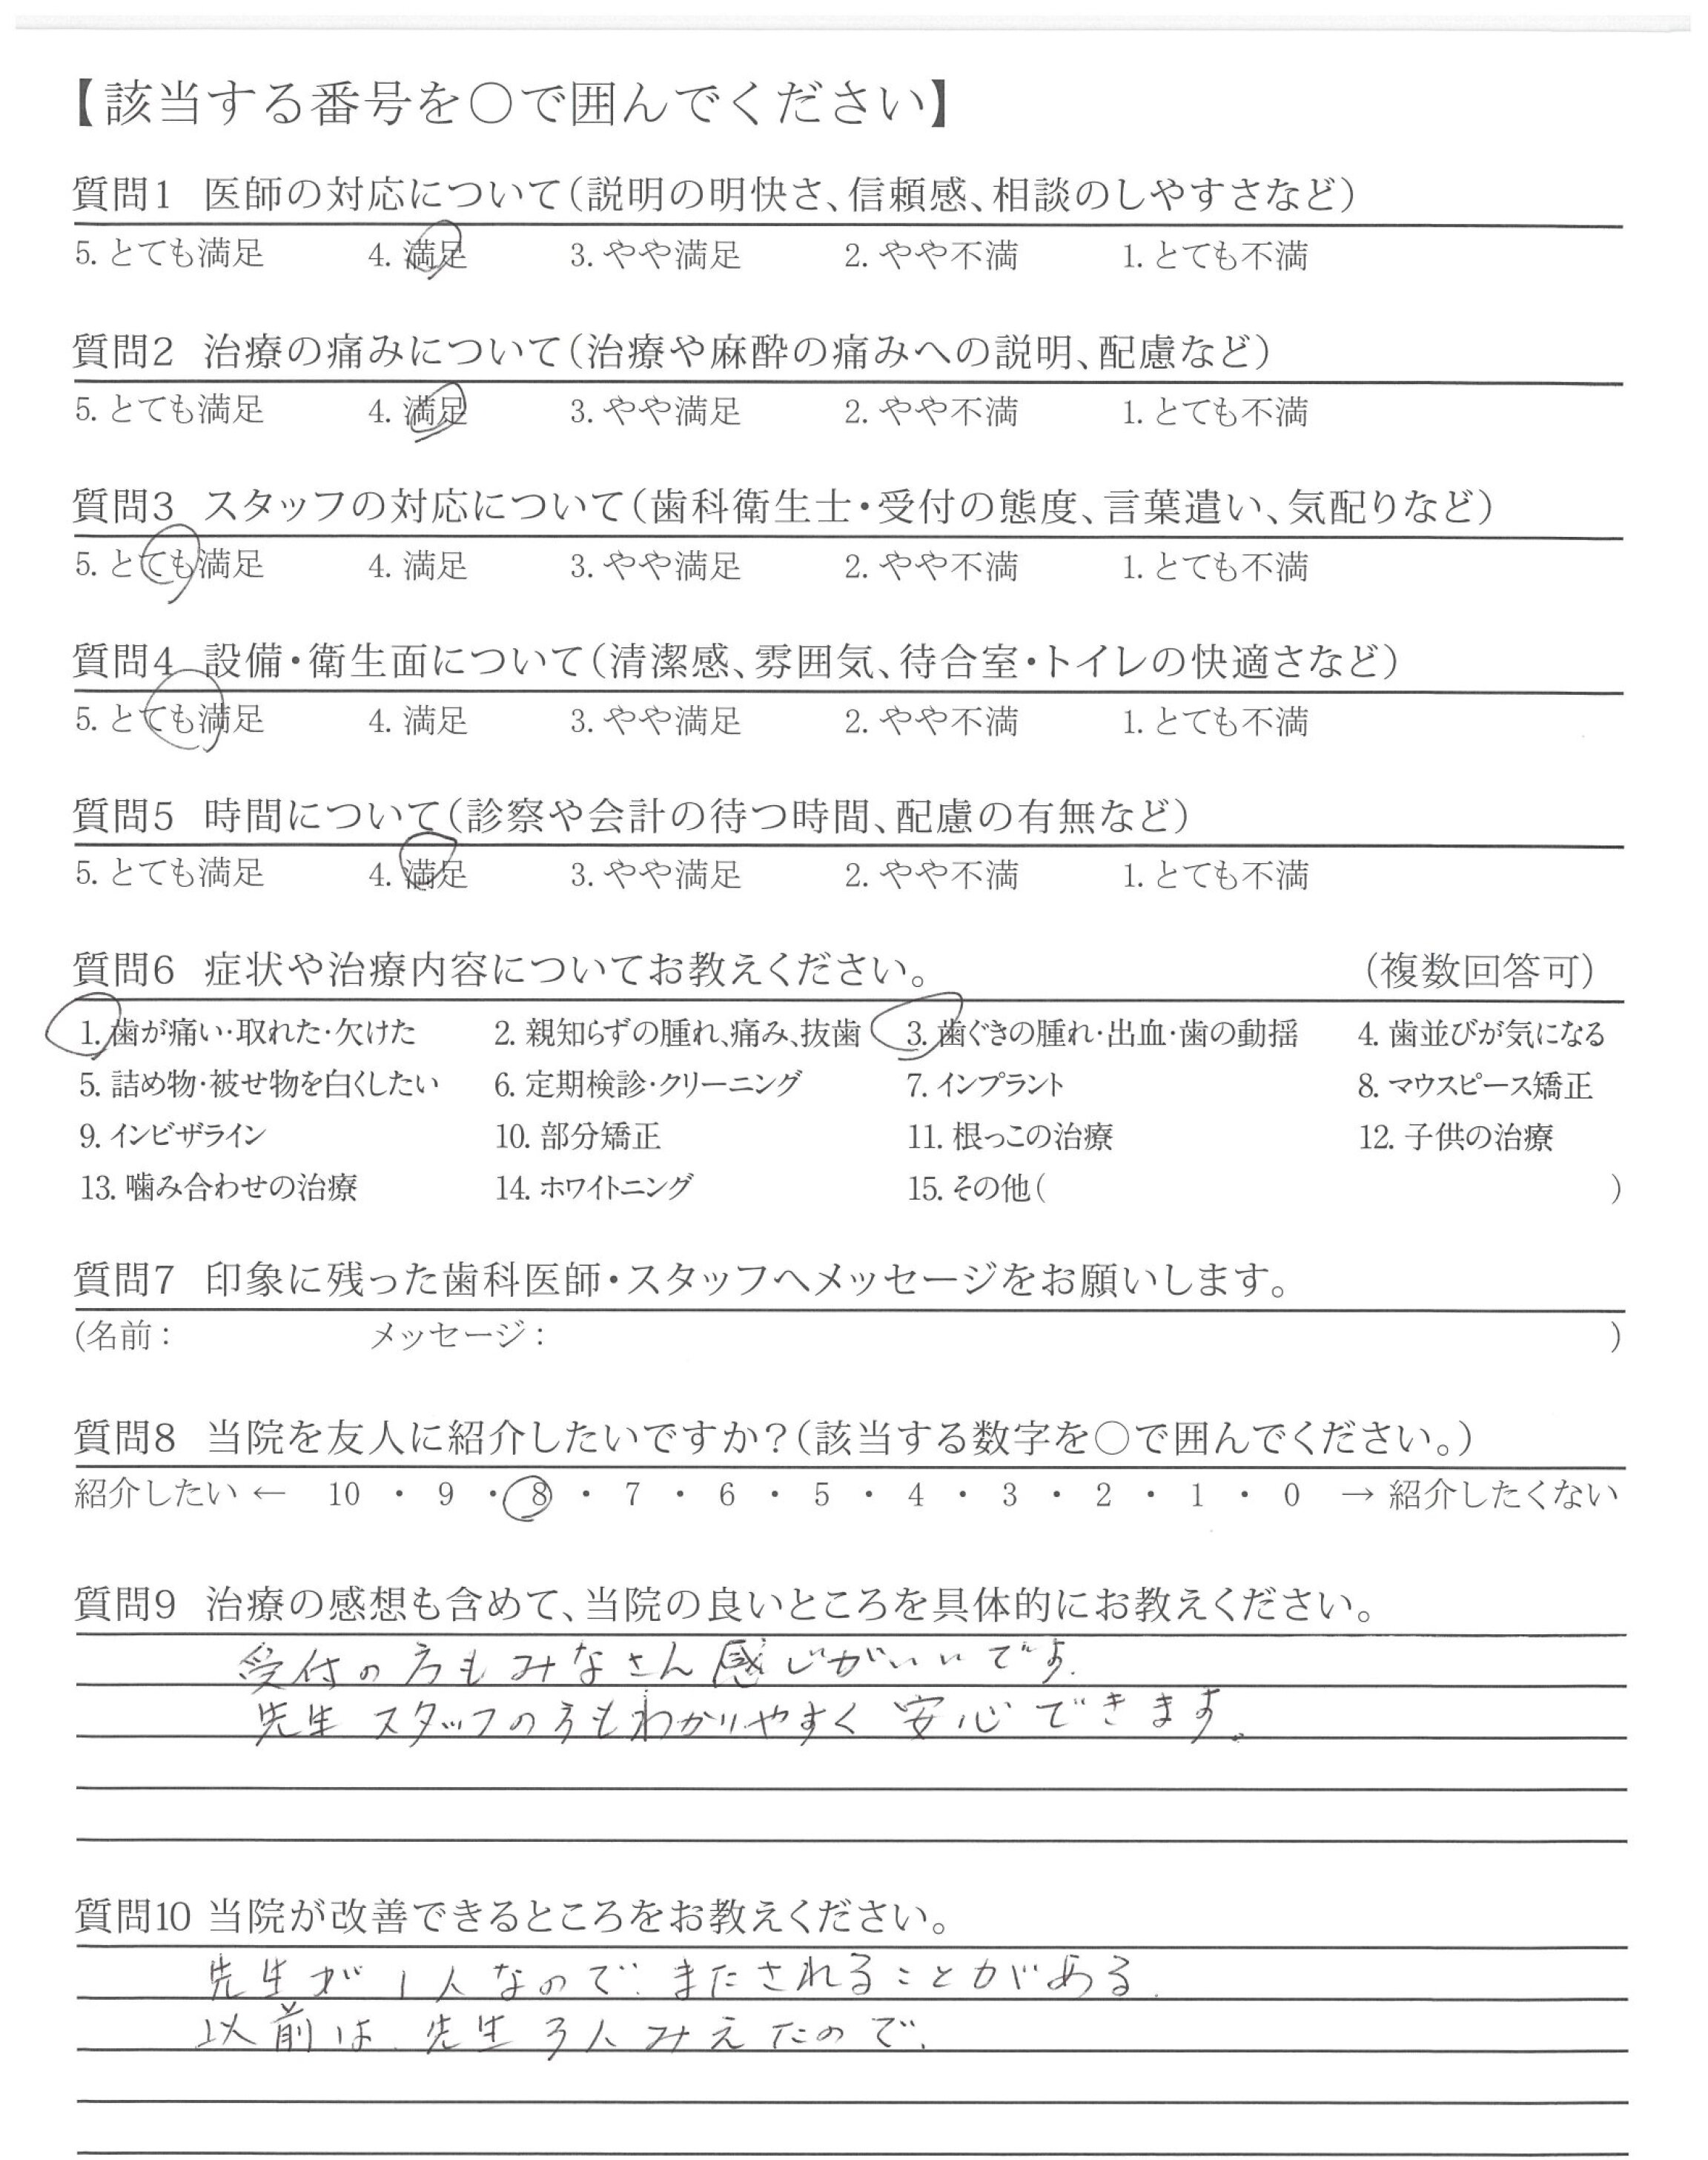 【該当する番号を〇で囲んでください】
質問1 医師の対応について（説明の明快さ、信頼感、相談のしやすさなど）
5. とても満足 4. 満足 3. やや満足 2. やや不満 1. とても不満
質問2 治療の痛みについて（治療や麻酔の痛みへの説明、配慮など）
5. とても満足 4. 満足 3. やや満足 2. やや不満 1. とても不満
質問3 スタッフの対応について（歯科衛生士・受付の態度、言葉遣い、気配りなど）
5. とても満足 4. 満足 3. やや満足 2. やや不満 1. とても不満
質問4 設備・衛生面について（清潔感、雰囲気、待合室・トイレの快適さなど）
5. とても満足 4. 満足 3. やや満足 2. やや不満 1. とても不満
質問5 時間について（診察や会計の待つ時間、配慮の有無など）
5. とても満足 4. 満足 3. やや満足 2. やや不満 1. とても不満
質問6 症状や治療内容についてお教えください。 （複数回答可）
1. 歯が痛い・取れた・欠けた 2. 親知らずの腫れ、痛み、抜歯 3. 歯ぐきの腫れ・出血・歯の動揺 4. 歯並びが気になる
5. 詰め物・被せ物を白くしたい 6. 定期検診・クリーニング 7. インプラント 8. マウスピース矯正
9. インビザライン 10. 部分矯正 11. 根っこの治療 12. 子供の治療
13. 噛み合わせの治療 14. ホワイトニング 15. その他（ ）
質問7 印象に残った歯科医師・スタッフへメッセージをお願いします。
（名前： メッセージ： ）
質問8 当院を友人に紹介したいですか？（該当する数字を〇で囲んでください。）
紹介したい ← 10 ・ 9 ・ 8 ・ 7 ・ 6 ・ 5 ・ 4 ・ 3 ・ 2 ・ 1 ・ 0 → 紹介したくない
質問9 治療の感想も含めて、当院の良いところを具体的にお教えください。
受付の方もみなさん感じがいいです。
先生スタッフの方もわかりやすく安心できます。
質問10 当院が改善できるところをお教えください。
先生が1人なので、またされることがある。
以前は、先生3人みえたので、